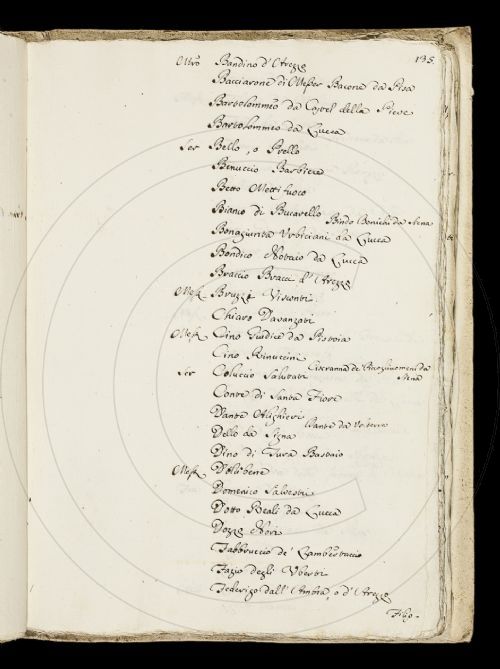 135
Mro Bandino d'Arezzo
Bacciarone di Messer Bacone da Pisa
Bartolommeo da Castel della Pieve
Bartolommeo da Lucca
Ser Bello, o Prello
Benuccio Barbiere
Betto Mettifuoco
Bianco di Bucarello
Bindo Bonichi da Siena
Bonagiunta Urbiciani da Lucca
Bondico Notaio da Lucca
Braccio Bracci d'Arezzo
Mess. Bruzzi Visconti.
Chiaro Davanzati
Mess. Cino Giudice da Pistoia
Cino Rinuccini
Ciscranna de' Piccogliuomini da Siena
Ser Coluccio Salutati
Conte di Santa Fiore
Dante Alighieri
Dante da Volterra
Dello da Signa
Dino di Tura Bastaio
Mess. Dolcibene
Domenico Salvestri
Dotto Reali da Lucca
Dozzo Nori
Fabbruccio de' Lambertaccio
Fazio degli Uberti
Federigo dall'Ambra, o d'Arezzo
Filip-